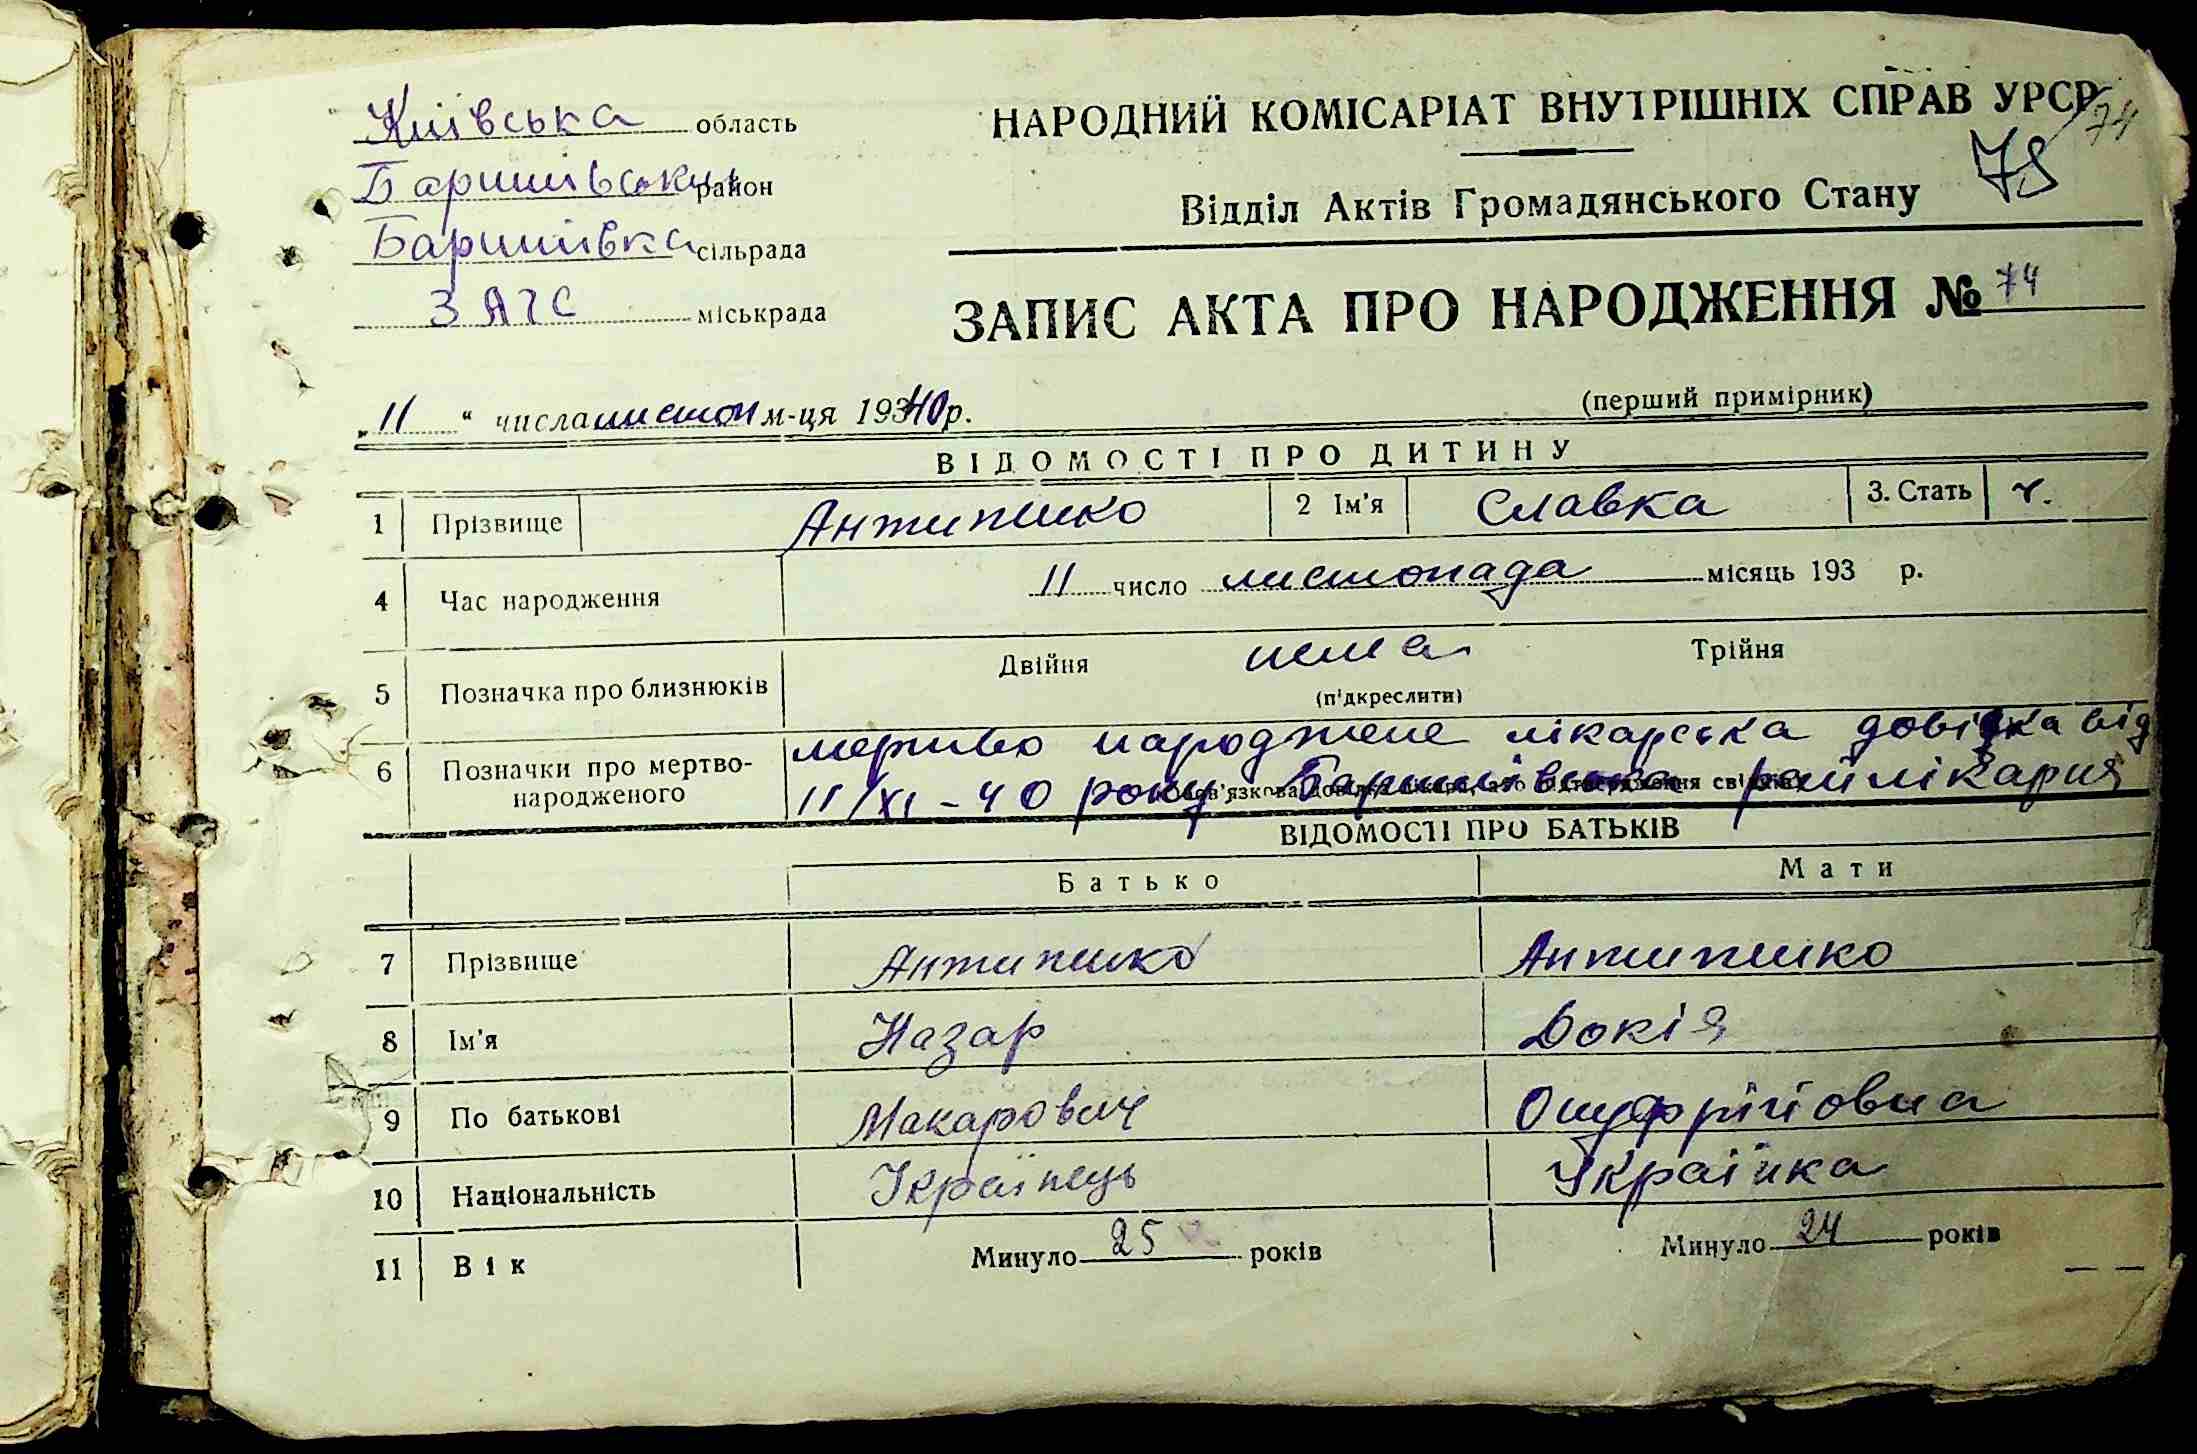 НАРОДНИЙ КОМІСАРІАТ ВНУТРІШНІХ СПРАВ УРСР
74
78
Київська область
Баришівський район
Баришівка сільрада
ЗАГС міськрада
Відділ Актів Громадянського Стану
ЗАПИС АКТА ПРО НАРОДЖЕННЯ № 74
(перший примірник)
„11“ числа листоп м-ця 1940 р.
ВІДОМОСТІ ПРО ДИТИНУ
1 Прізвище Антипенко 2 Ім'я Славка 3. Стать ч.
4 Час народження 11 число листопада місяць 193 р.
5 Позначка про близнюків Двійня нема Трійня
(підкреслити)
6 Позначки про мертвонародженого мертво народжене лікарська довідка від
11/XI – 40 року Баришівська райлікарня
ВІДОМОСТІ ПРО БАТЬКІВ
Батько Мати
7 Прізвище Антипенко Антипенко
8 Ім'я Назар Докія
9 По батькові Макарович Онуфріївна
10 Національність Українець Українка
11 Вік Минуло 25 років Минуло 24 років